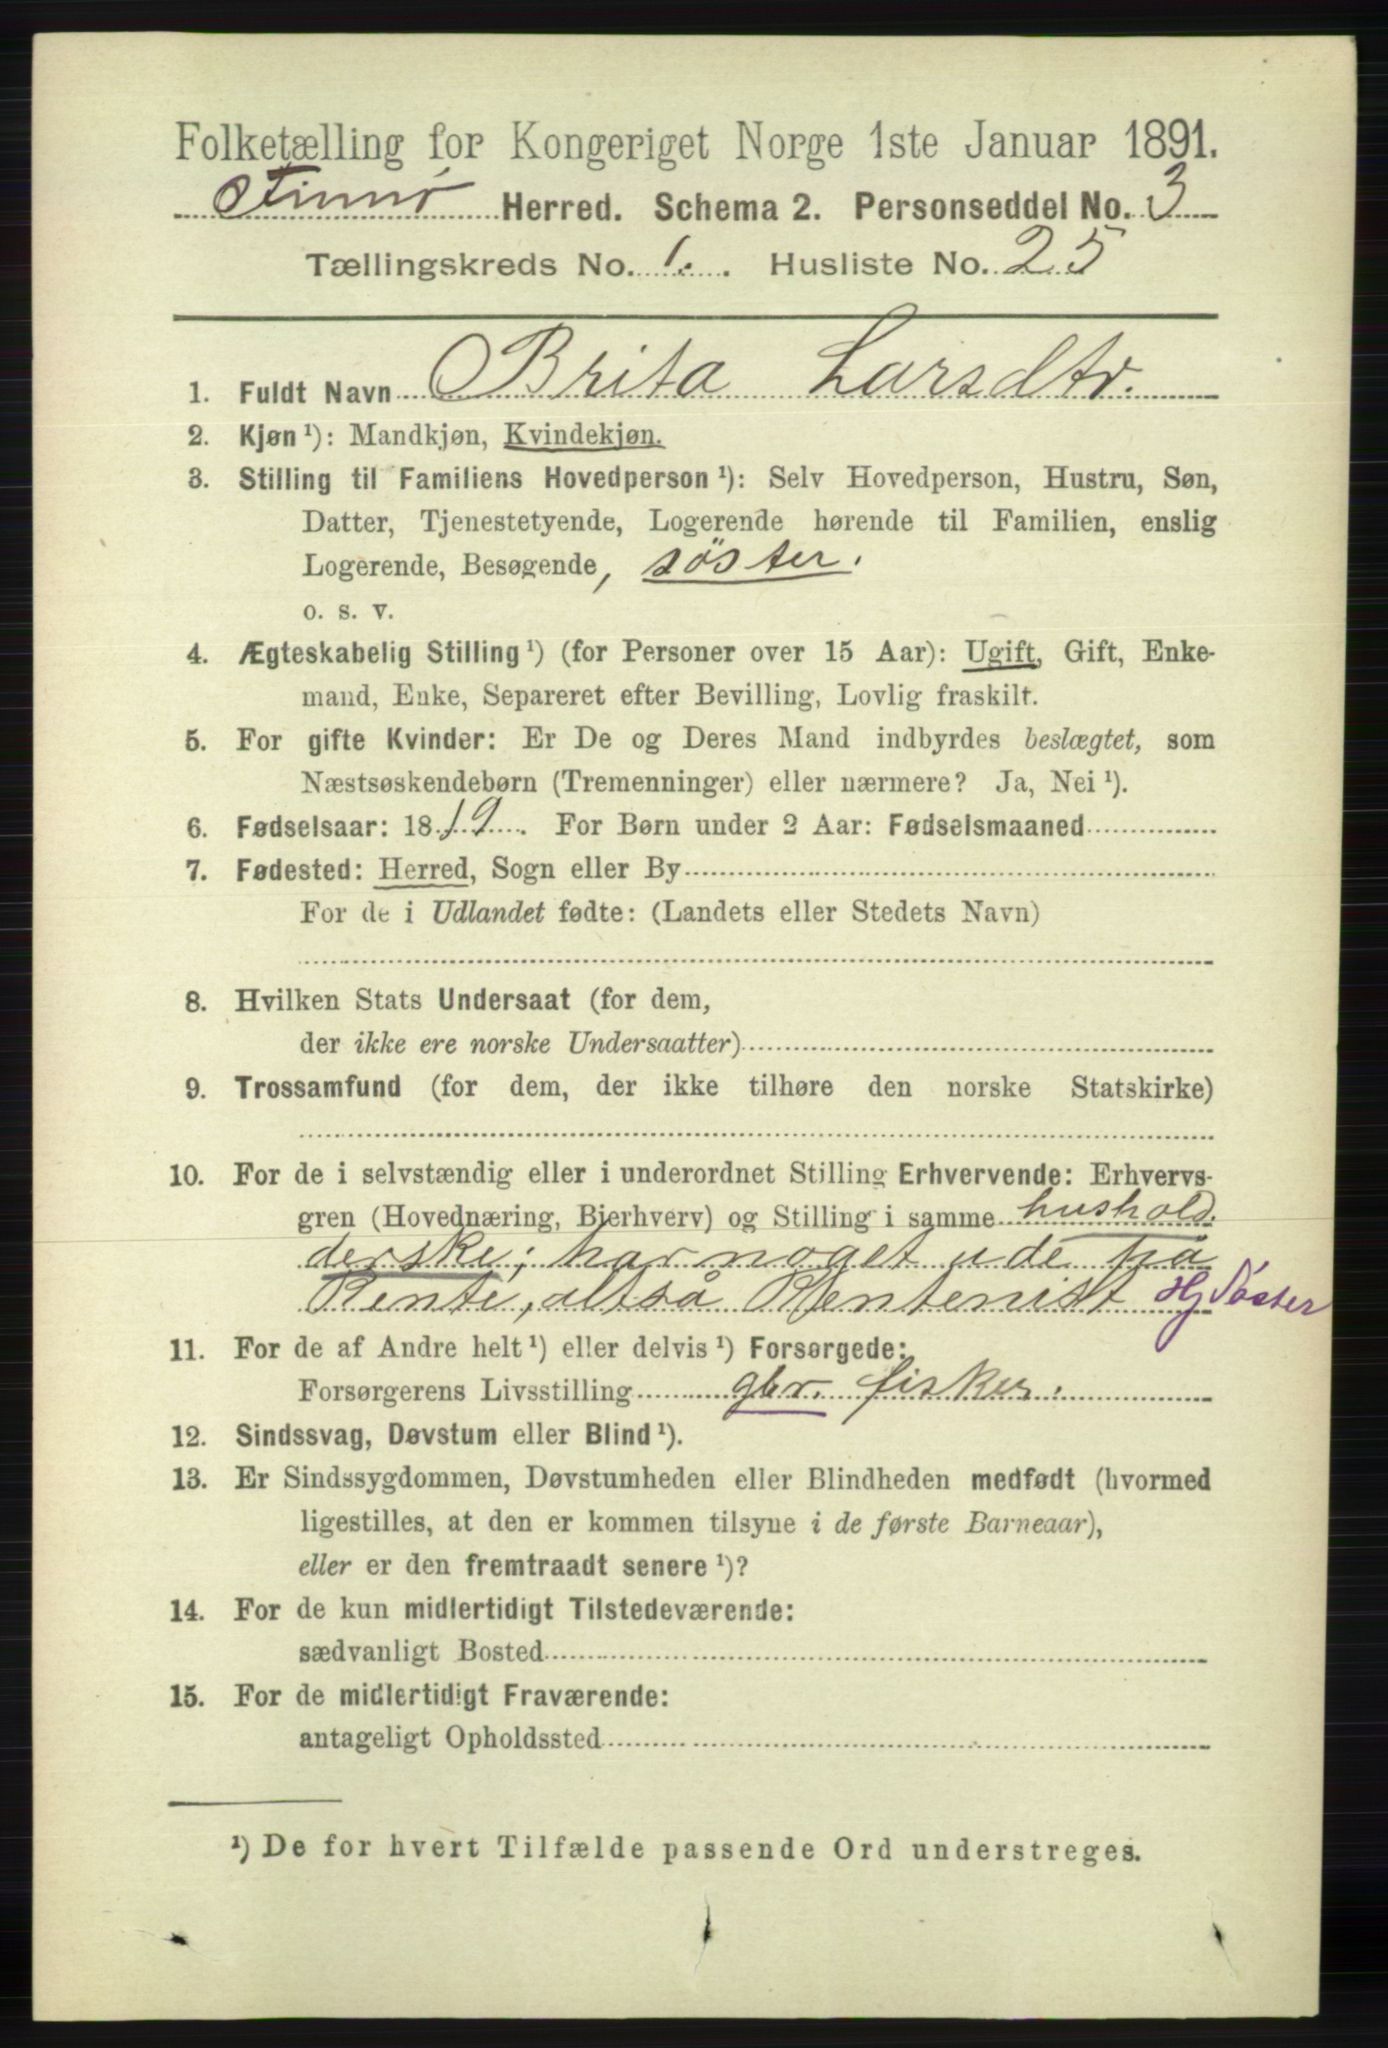 Folketælling for Kongeriget Norge 1ste Januar 1891.
Finnö Herred. Schema 2. Personseddel No. 3
Tællingskreds No. 1. Husliste No. 25
1. Fuldt Navn Brita Larsdtr.
2. Kjøn ¹): Mandkjøn, Kvindekjøn.
3. Stilling til Familiens Hovedperson ¹): Selv Hovedperson, Hustru, Søn,
Datter, Tjenestetyende, Logerende hørende til Familien, enslig
Logerende, Besøgende, söster.
o. s. v.
4. Ægteskabelig Stilling ¹) (for Personer over 15 Aar): Ugift, Gift, Enke-
mand, Enke, Separeret efter Bevilling, Lovlig fraskilt.
5. For gifte Kvinder: Er De og Deres Mand indbyrdes beslægtet, som
Næstsøskendebørn (Tremenninger) eller nærmere? Ja, Nei ¹).
6. Fødselsaar: 1819. For Børn under 2 Aar: Fødselsmaaned
7. Fødested: Herred, Sogn eller By
For de i Udlandet fødte: (Landets eller Stedets Navn)
8. Hvilken Stats Undersaat (for dem,
der ikke ere norske Undersaatter)
9. Trossamfund (for dem, der ikke tilhøre den norske Statskirke)
10. For de i selvstændig eller i underordnet Stilling Erhvervende: Erhvervs-
gren (Hovednæring, Bierhverv) og Stilling i samme hushold.
derske; har noget ude på
Rente, altså Rentenist Hj Söster
11. For de af Andre helt ¹) eller delvis ¹) Forsørgede:
Forsørgerens Livsstilling gbr. fisker.
12. Sindssvag, Døvstum eller Blind ¹).
13. Er Sindssygdommen, Døvstumheden eller Blindheden medfødt (hvormed
ligestilles, at den er kommen tilsyne i de første Barneaar),
eller er den fremtraadt senere ¹)?
14. For de kun midlertidigt Tilstedeværende:
sædvanligt Bosted
15. For de midlertidigt Fraværende:
antageligt Opholdssted
¹) De for hvert Tilfælde passende Ord understreges.